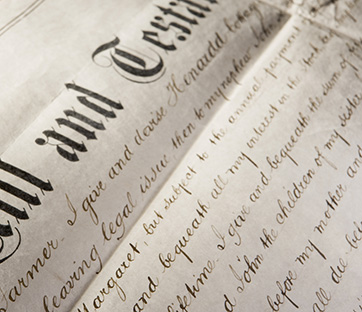 ill and Testa
armer. I give and devise Henauld
leaving legal issue then to my nephew
Margaret, but subject to the annual payment
and bequeath all my interest in the
lifetime. I give and bequeath the sum of
d John the children of my sister
before my mother and
all die